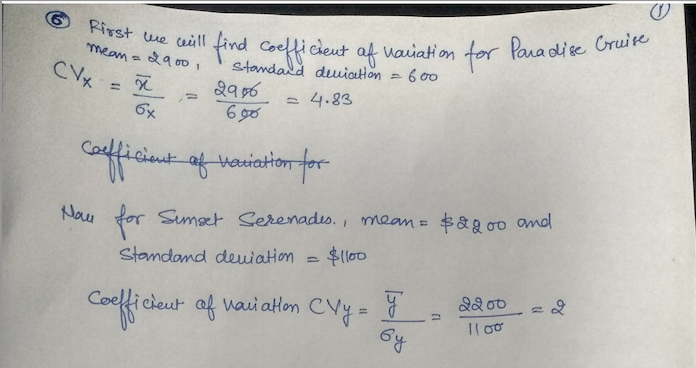 ①
⑥ First we will find coefficient of variation for Paradise Cruise
mean = 2900, standard deviation = 600
CVx = x̄/σx = 2900/600 = 4.83
Coefficient of variation for
Now for Sunset Serenades., mean = $2200 and
standard deviation = $1100
Coefficient of variation CVy = ȳ/σy = 2200/1100 = 2